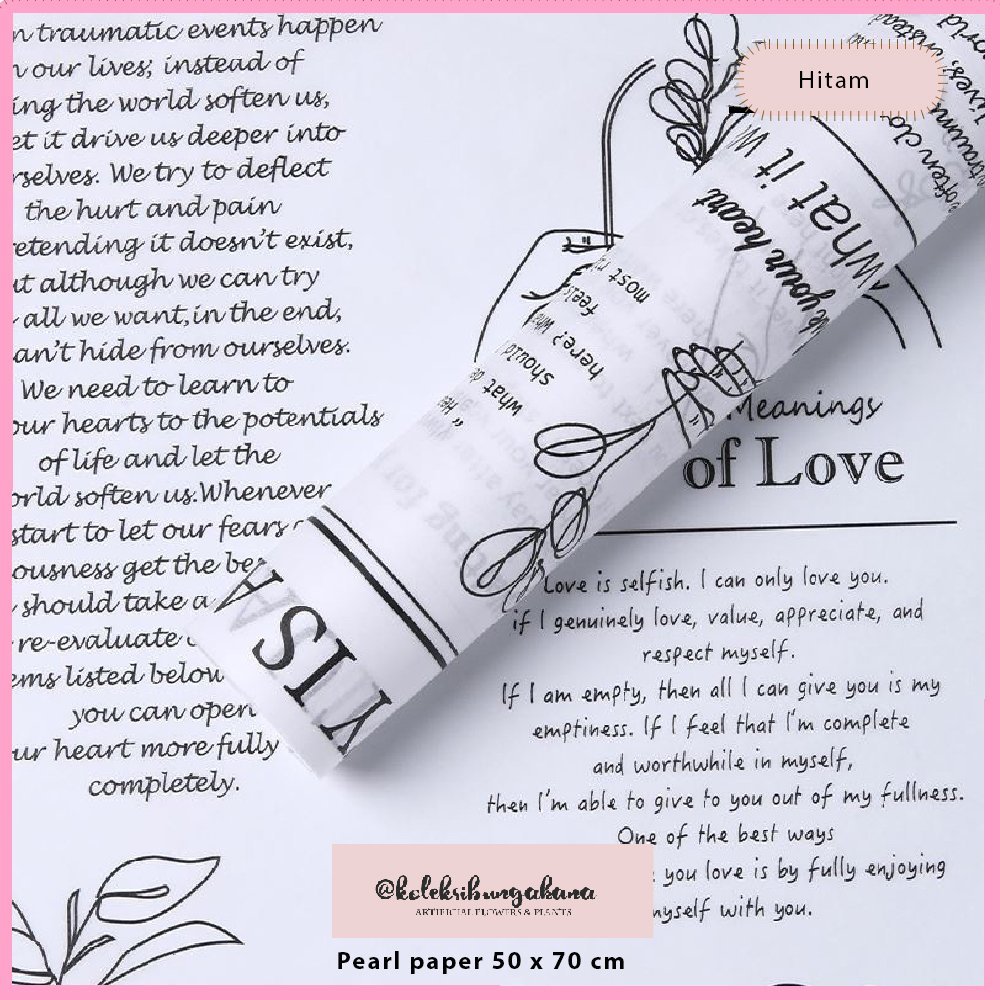 Hitam
n traumatic events happen
our lives; instead of
ing the world soften us,
et it drive us deeper into
rselves. We try to deflect
the hurt and pain
retending it doesn't exist,
ut although we can try
all we want,in the end,
an't hide from ourselves.
We need to learn to
our hearts to the potentials
of life and let the
orld soften us.Whenever
start to let our fears
ousness get the be
should take a
re-evaluate
ems listed below
you can open
ur heart more fully
completely.
What it W
your heart
most
feel
here? Wha
should
what de
VISA
Meanings
of Love
Love is selfish. I can only love you.
if I genuinely love, value, appreciate, and
respect myself.
If I am empty, then all I can give you is my
emptiness. If I feel that I'm complete
and worthwhile in myself,
then I'm able to give to you out of my fullness.
One of the best ways
you love is by fully enjoying
myself with you.
@koleksibungakana
ARTIFICIAL FLOWERS & PLANTS
Pearl paper 50 x 70 cm